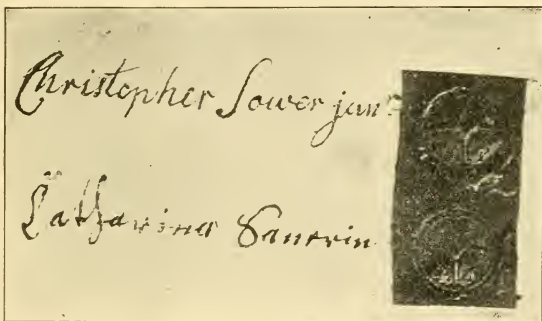 Christopher Sower jun
Catharina Saurrin